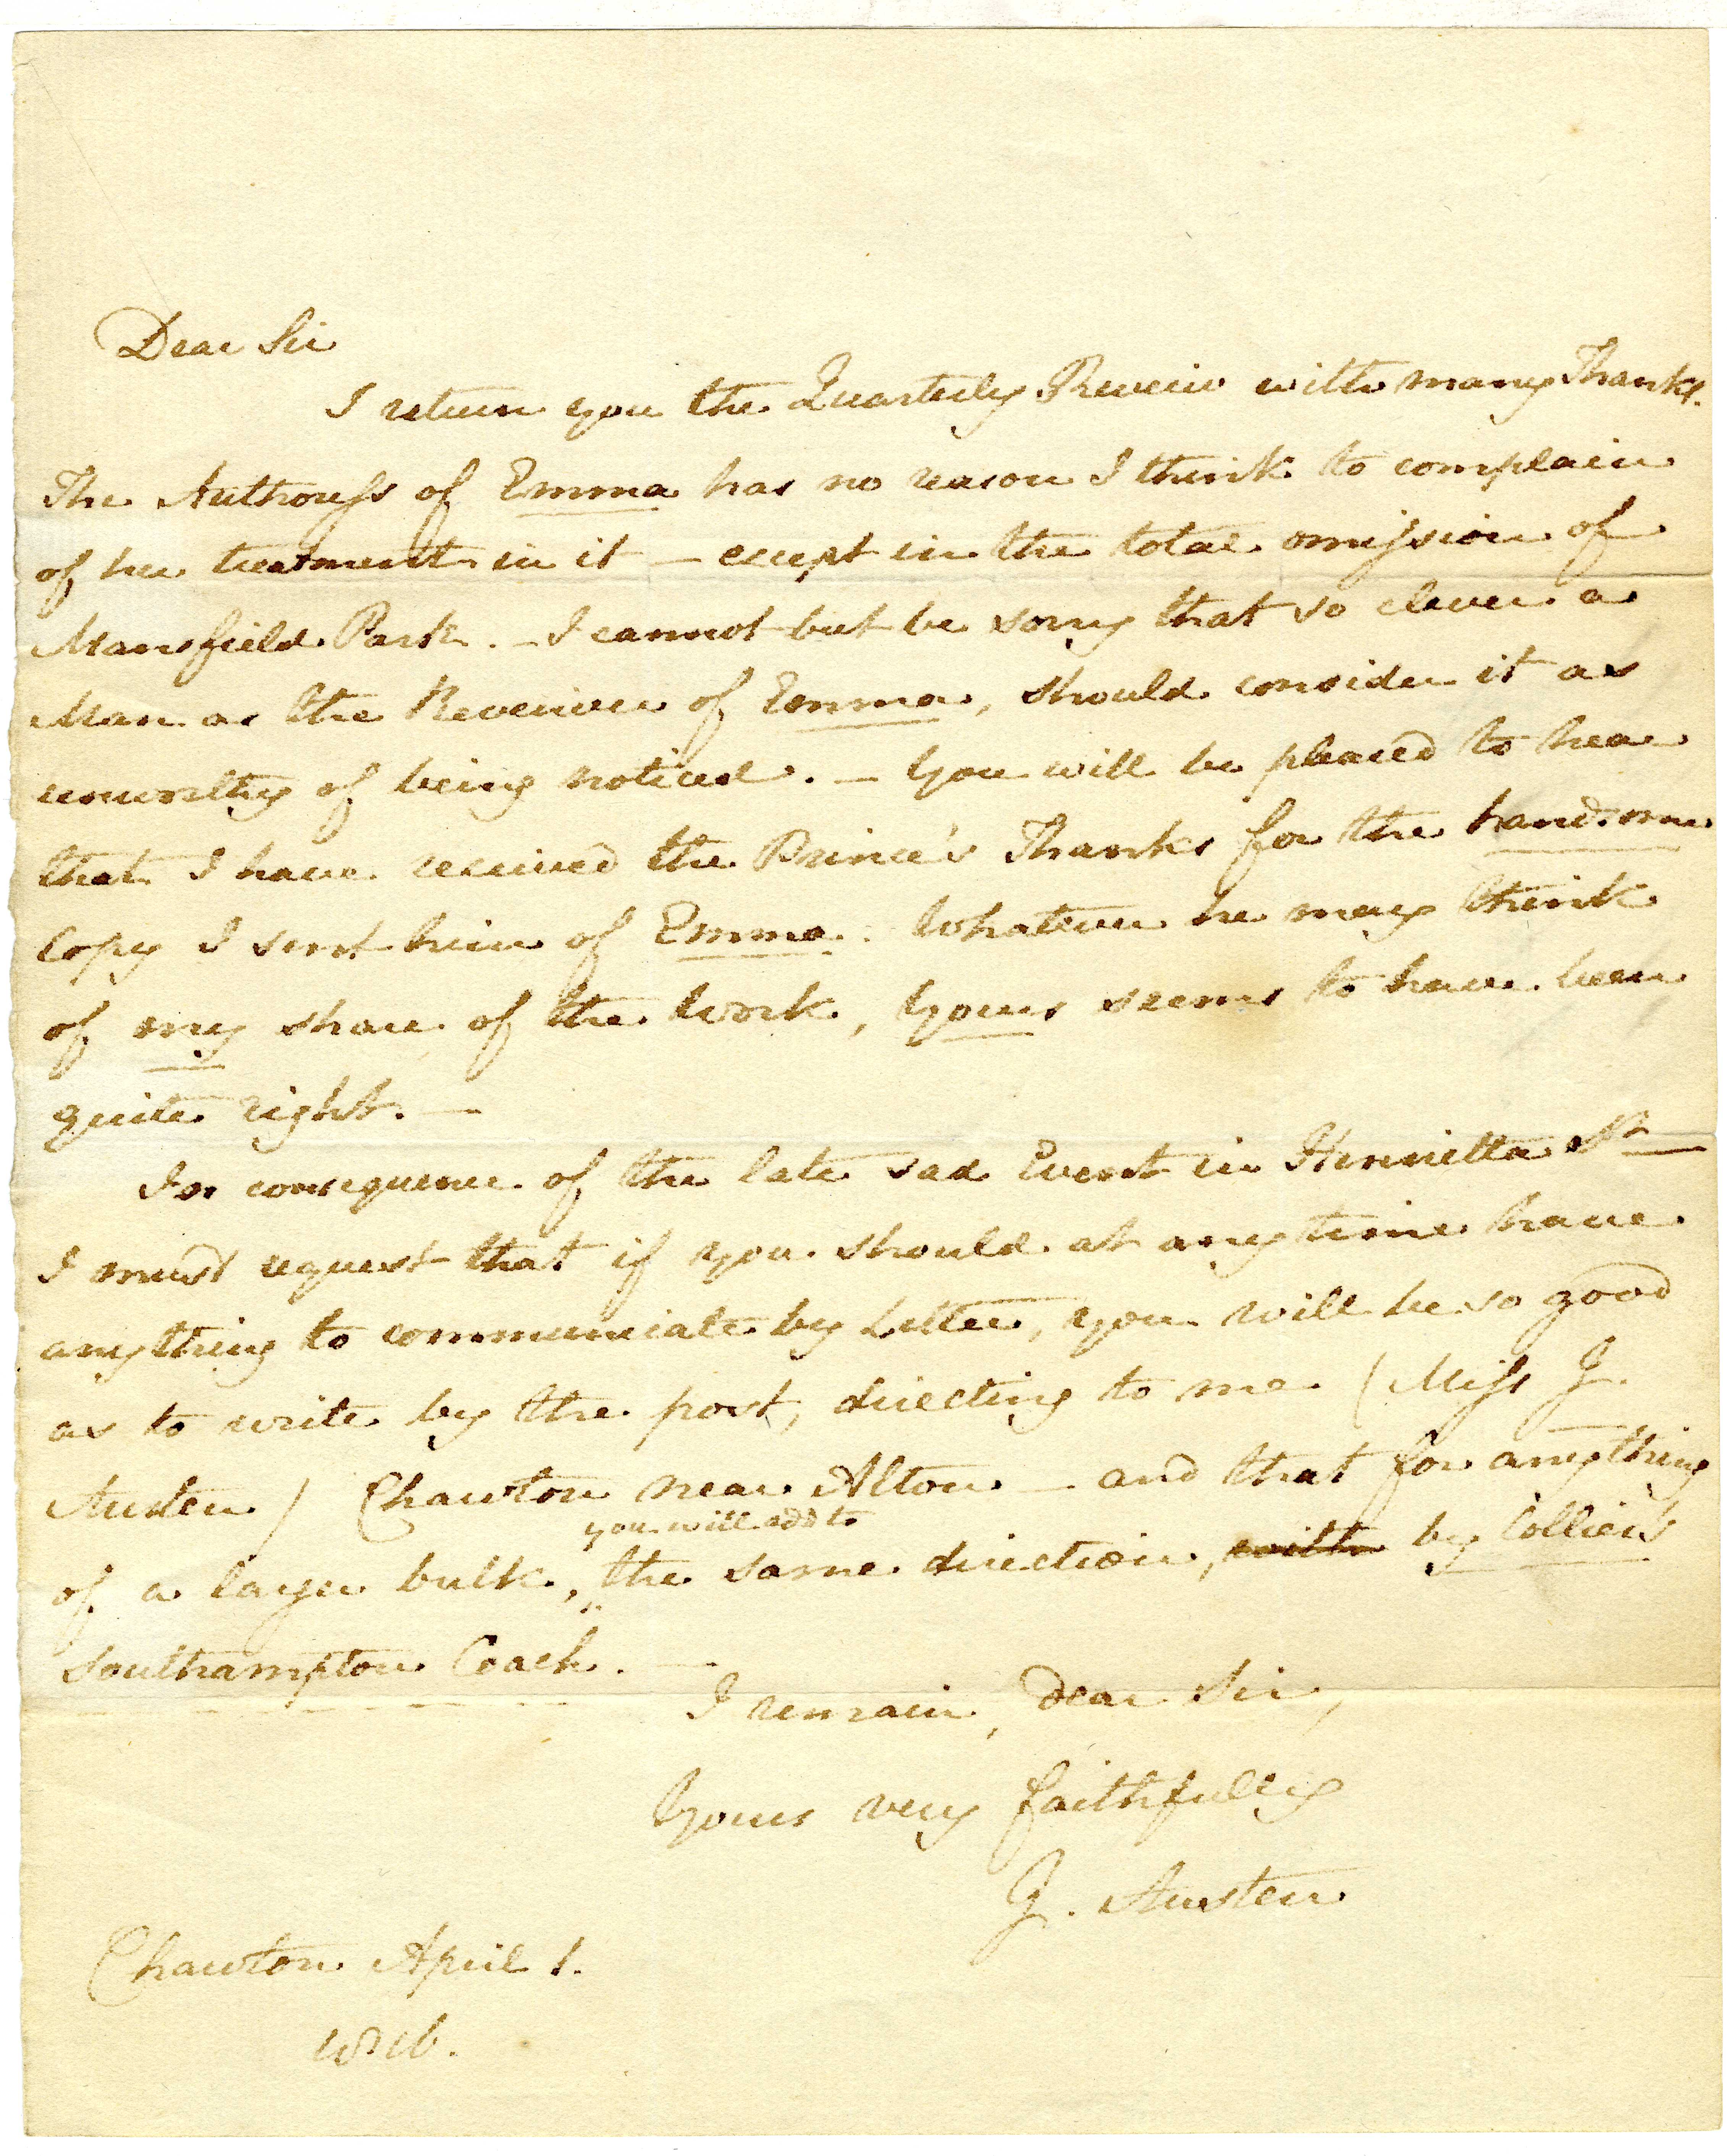 Dear Sir
I return you the Quarterly Reveiw with many Thanks.
The Authoress of Emma has no reason I think to complain
of her treatment in it — except in the total omission of
Mansfield Park. — I cannot but be sorry that so clever a
Man as the Reveiwer of Emma, should consider it as
unworthy of being noticed. — You will be pleased to hear
that I have received the Prince's Thanks for the handsome
Copy I sent him of Emma. Whatever he may think
of my share of the Work, Yours seems to have been
quite right. —
In consequence of the late sad Event in Henrietta St —
I must request that if you should at any time have
anything to communicate by Letter, you will be so good
as to write by the post, directing to me (Miss J.
Austen) Chawton near Alton — and that for anything
you will add to
of a larger bulk, the same direction, by Collier's
Southampton Coach. —
I remain, dear Sir,
Yours very faithfully
J. Austen
Chawton April 1.
1816.